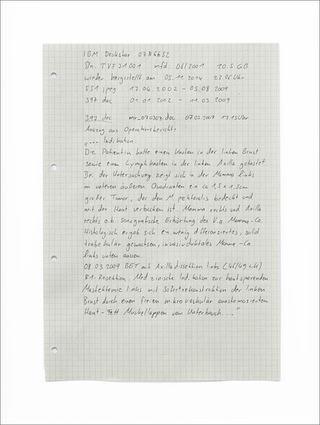 IBM Deskstar 07N6652
wieder hergestellt am 05.11.2014
551 jpeg 17.06.2002 - 05.08.2009
397 doc 01.01.2002 - 11.05.2009
Auszug aus Operationsbericht:
Die Patientin hatte einen Knoten in der linken Brust
sowie einen Lymphknoten in der linken Axilla getastet.
Bei der Untersuchung zeigt sich in der Mamma links
im unteren äusseren Quadranten ein ca. 1,5 x 1,5cm
großer Tumor, der den M. pectoralis bedeckt und
mit der Haut verbacken ist. Mamma rechts und Axilla
rechts o.B. sonografische Erhärtung des V.a. Mamma-Ca.
Histologisch ergab sich ein wenig differenziertes, solid
trabekulär gewachsen, invasiv duktales Mamma-Ca
links unten aussen.
BET mit Axilladissektion links
R1-Resektion. Med. Indikation zur hautsparenden
Mastektomie links mit Sofortrekonstruktion der linken
Brust durch einen freien mikrovaskulär anastomosierten
Haut-Fett Muskellappen vom Unterbauch...."